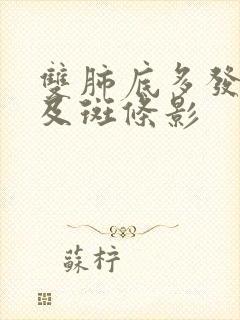 雙肺底多發
及斑條影
蘇柠